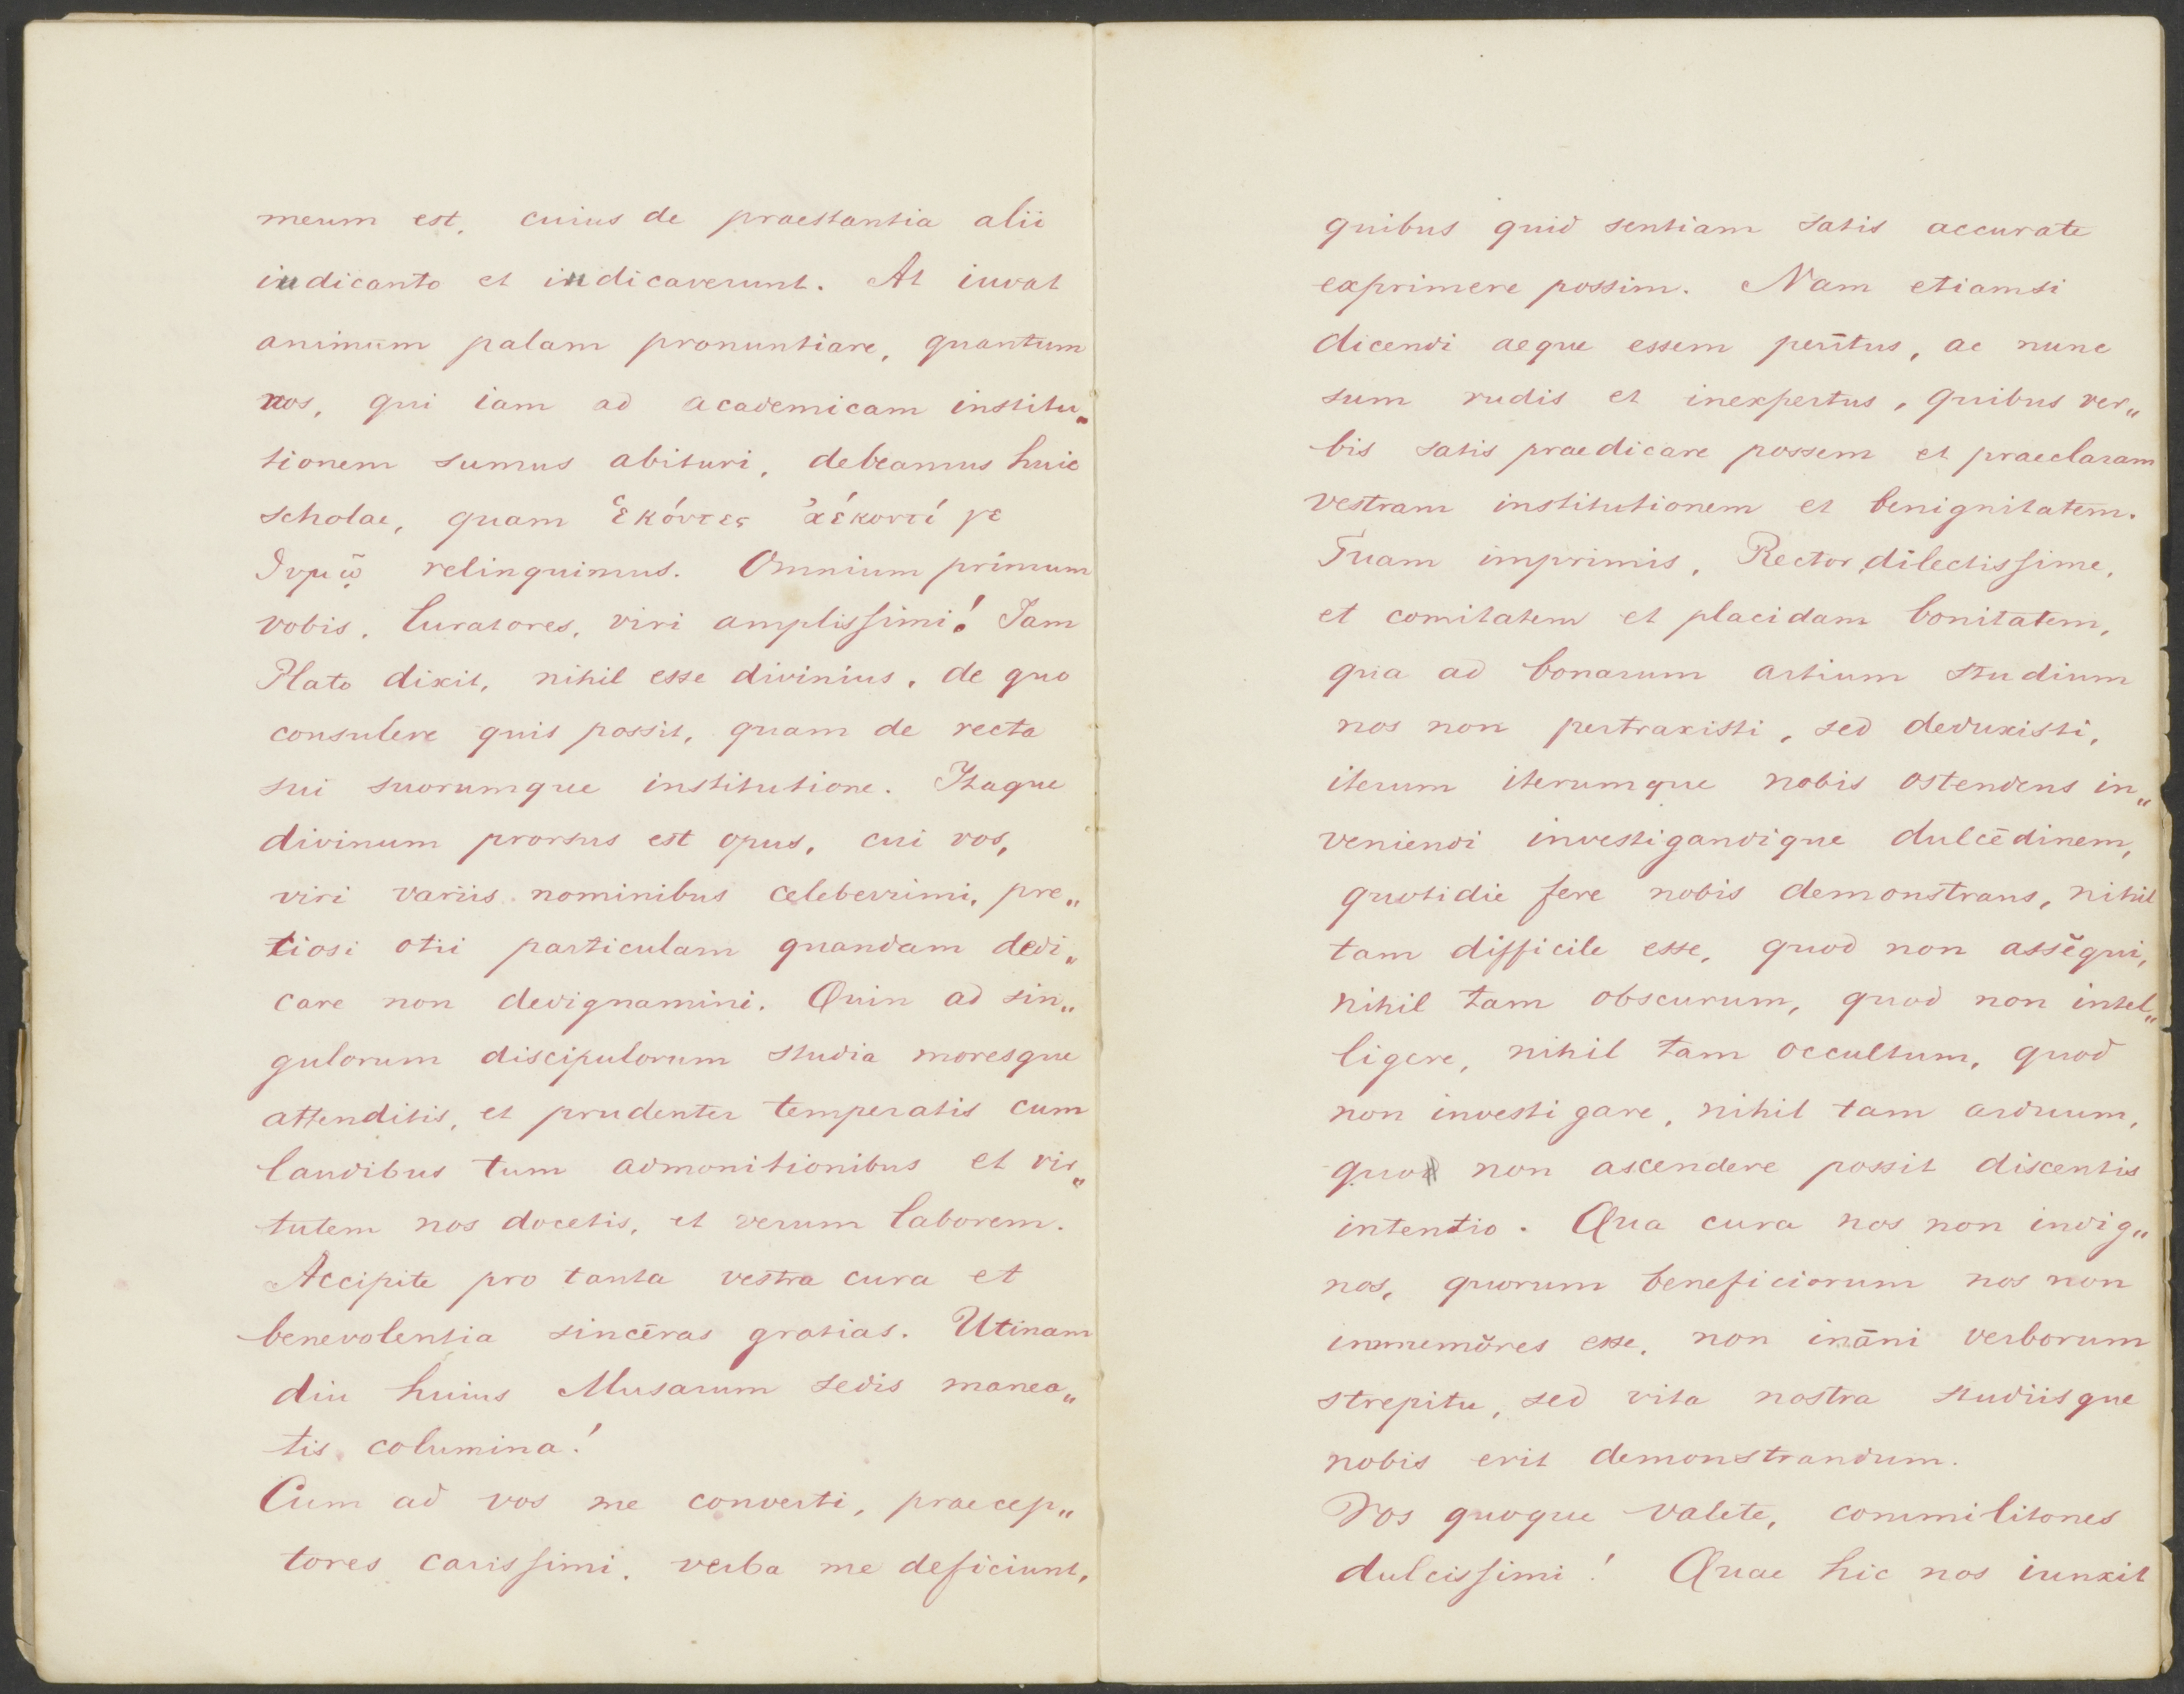 meum est, cuius de praestantia alii
iudicanto et iudicaverunt. At iuvat
animum palam pronuntiare, quantum
nos, qui iam ad academicam institu„
tionem sumus abituri, debeamus huic
scholae, quam ἑκόντες ἀέκοντί γε
θυμῷ relinquimus. Omnium primum
vobis, Curatores, viri amplissimi! Iam
Plato dixit, nihil esse divinius, de quo
consulere quis possit, quam de recta
sui suorumque institutione. Itaque
divinum prorsus est opus, cui vos,
viri variis nominibus celeberrimi, pre„
tiosi otii particulam quandam dedi„
care non dedignamini. Quin ad sin„
gulorum discipulorum studia moresque
attenditis, et prudenter temperatis cum
laudibus tum admonitionibus et vir„
tutem nos docetis, et verum laborem.
Accipite pro tanta vestra cura et
benevolentia sincēras gratias. Utinam
diu huius Musarum sedis manea„
tis columina!
Cum ad vos me converti, praecep„
tores carissimi, verba me deficiunt,
quibus quid sentiam satis accurate
exprimere possim. Nam etiamsi
dicendi aeque essem perītus, ac nunc
sum rudis et inexpertus, quibus ver„
bis satis praedicare possem et praeclaram
vestram institutionem et benignitatem.
Tuam imprimis, Rector dilectissime,
et comitatem et placidam bonitatem,
qua ad bonarum artium studium
nos non pertraxisti, sed deduxisti,
iterum iterumque nobis ostendens in„
veniendi investigandique dulcēdinem,
quotidie fere nobis demonstrans, nihil
tam difficile esse, quod non assĕqui,
nihil tam obscurum, quod non intel„
ligere, nihil tam occultum, quod
non investigare, nihil tam arduum,
quod non ascendere possit discentis
intentio. Qua cura nos non indig„
nos, quorum beneficiorum nos non
immemŏres esse, non ināni verborum
strepitu, sed vita nostra studiisque
nobis erit demonstrandum.
Vos quoque valete, commilitones
dulcissimi! Quae hic nos iunxit